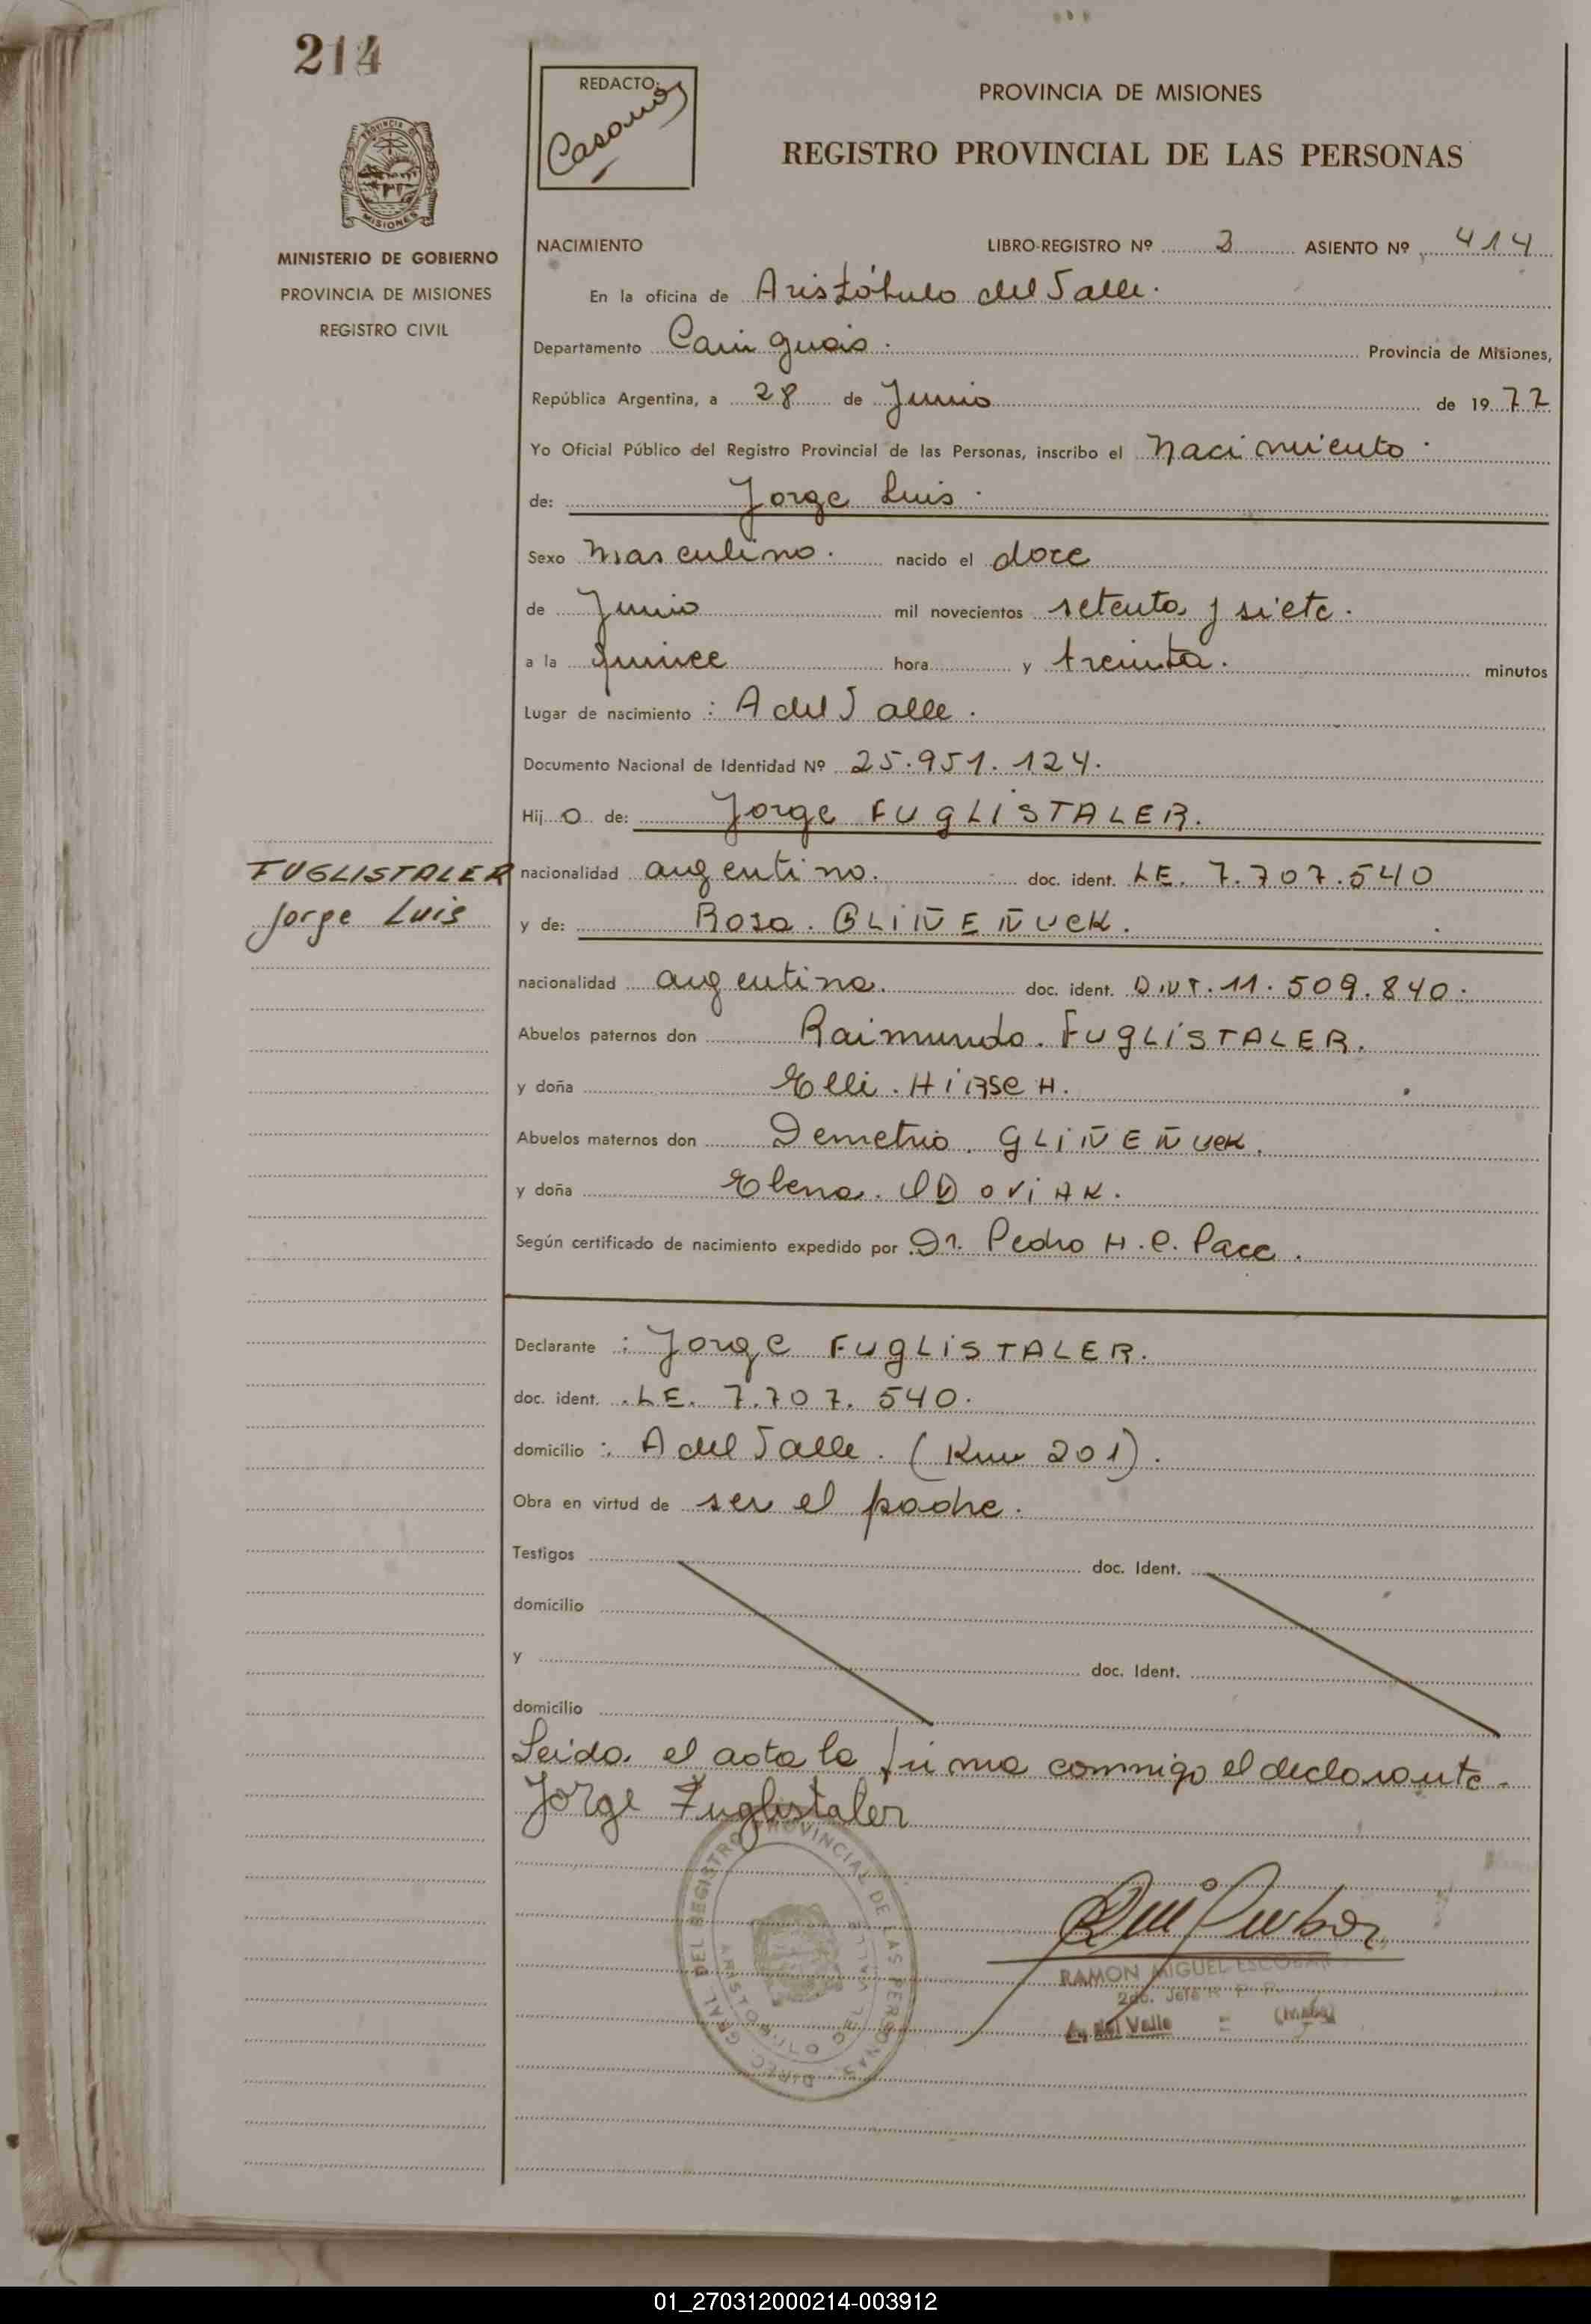 214
REDACTO:
PROVINCIA DE MISIONES
REGISTRO PROVINCIAL DE LAS PERSONAS
MISIONES
MINISTERIO DE GOBIERNO
PROVINCIA DE MISIONES
REGISTRO CIVIL
NACIMIENTO LIBRO-REGISTRO Nº ASIENTO Nº 414
En la oficina de Aristóbulo del Valle.
Departamento Cainguás. Provincia de Misiones,
República Argentina, a 28 de Junio de 1977
Yo Oficial Público del Registro Provincial de las Personas, inscribo el Nacimiento
de: Jorge Luis.
Sexo Masculino. nacido el doce
de Junio mil novecientos setenta y siete.
a la quince hora y treinta. minutos
Lugar de nacimiento : A del Valle.
Documento Nacional de Identidad Nº 25.951.124.
Hijo de: Jorge FUGLISTALER.
FUGLISTALER
Jorge Luis
nacionalidad argentino. doc. ident. LE. 7.707.540
y de: Rosa. GLIÑEÑUCK.
nacionalidad argentina. doc. ident. D.N.I. 11.509.840.
Abuelos paternos don Raimundo. FUGLISTALER.
y doña Elli. HIRSCH.
Abuelos maternos don Demetrio. GLIÑEÑUCK.
y doña Elena.
Según certificado de nacimiento expedido por Dr. Pedro H.C. Pace.
Declarante : Jorge FUGLISTALER.
doc. ident. LE. 7.707.540.
domicilio : A del Valle. (Km 201).
Obra en virtud de ser el padre.
Testigos doc. Ident.
domicilio
y doc. Ident.
domicilio
Leida el acta la firma conmigo el declarante.
Jorge Fuglistaler
DIREC. GRAL DEL REGISTRO PROVINCIAL DE LAS PERSONAS
ARISTOBULO DEL VALLE
RAMON MIGUEL ESCOBAR
2do. Jefe R P P
A. del Valle =
01_270312000214-003912